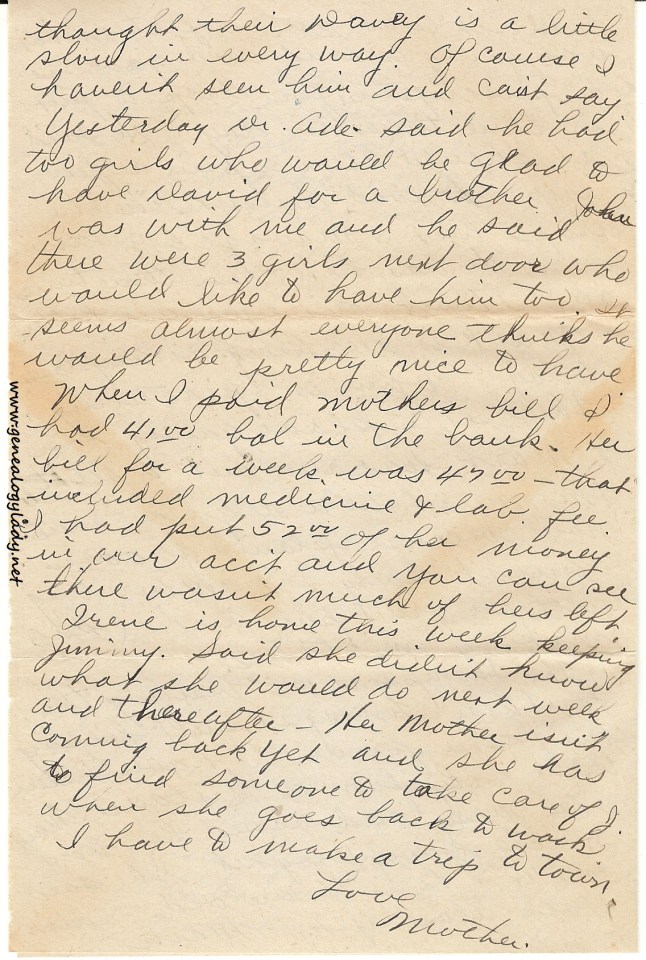 thought their Davey is a little
slow in every way. Of course I
haven't seen him and can't say
Yesterday Dr. Ade. said he had
too girls who would be glad to
have David for a brother John
was with me and he said
there were 3 girls next door who
would like to have him too It
seems almost everyone thinks he
would be pretty nice to have
When I paid mothers bill I
had 41.00 bal in the bank. Her
bill for a week was 47 00 - that
included medicine & lab. fee
I had put 52 00 of her money
in our acct and you can see
there wasn't much of hers left
Irene is home this week keeping
Jimmy. Said she didn't know
what she would do next week
and thereafter - Her Mother isn't
coming back yet and she has
to find someone to take care of J.
when she goes back to work
I have to make a trip to town.
Love
Mother.
www.genealogylady.net